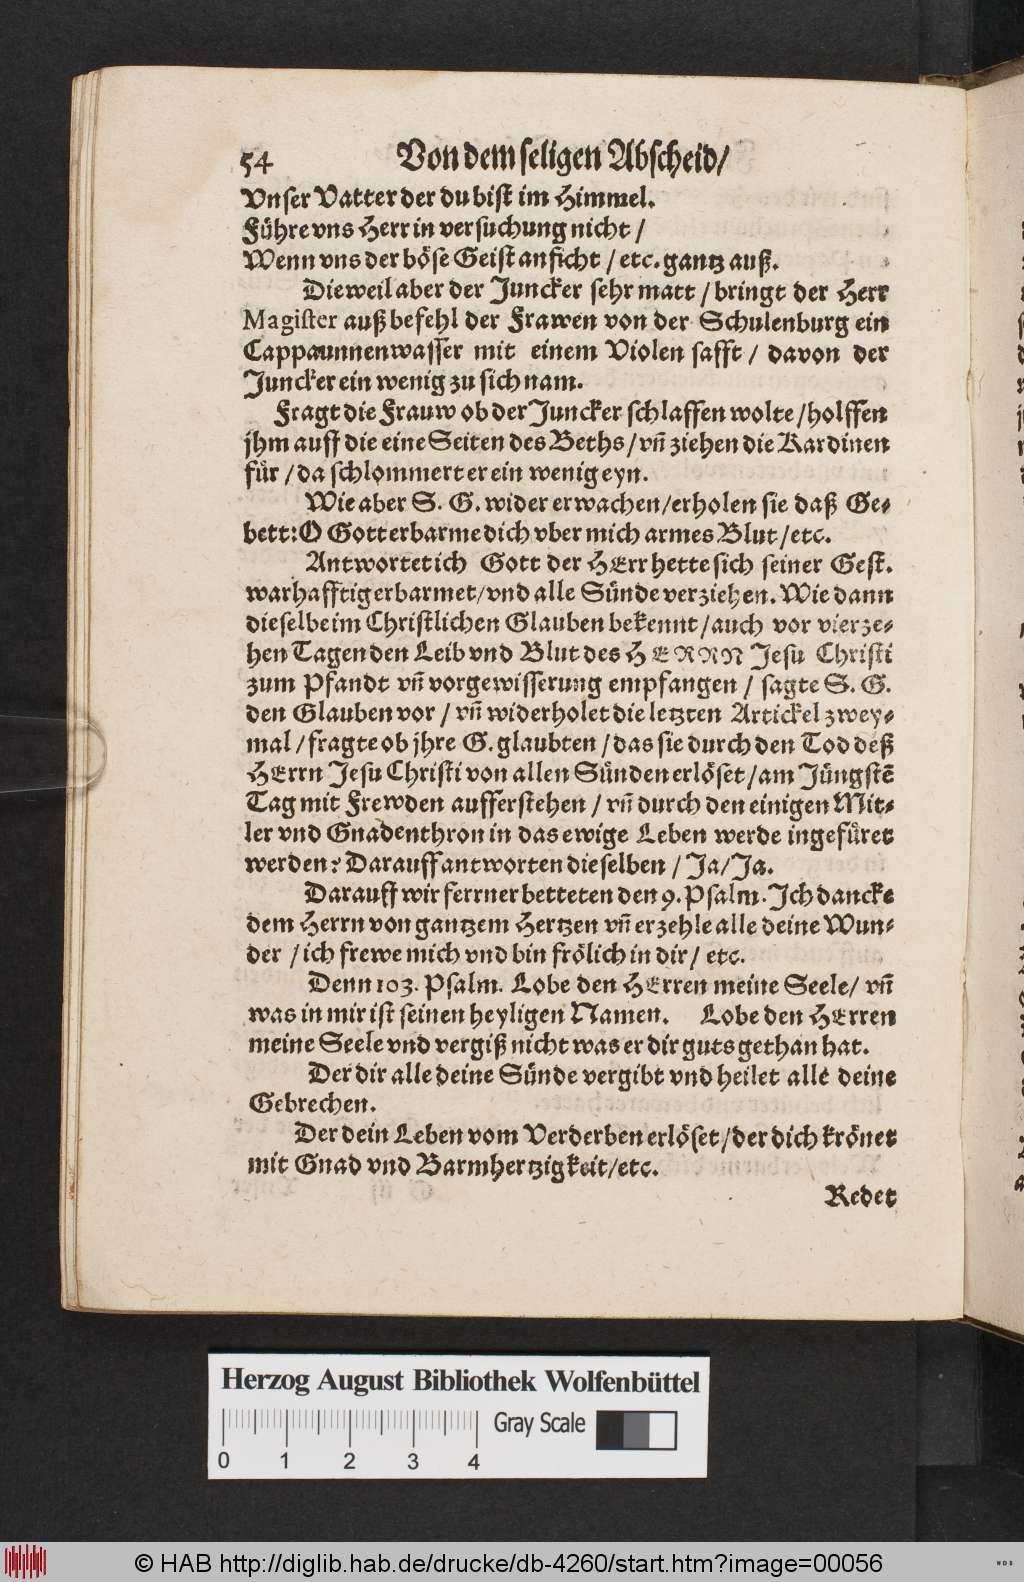 54 Von dem seligen Abscheid/
Vnser Vatter der du bist im Himmel.
Führe vns Herr in versuchung nicht /
Wenn vns der böse Geist anficht / etc. gantz auß.
Dieweil aber der Juncker sehr matt / bringt der Herr
Magister auß befehl der Frawen von der Schulenburg ein
Cappaunnenwasser mit einem Violen safft / davon der
Juncker ein wenig zu sich nam.
Fragt die Frauw ob der Juncker schlaffen wolte / holffen
jhm auff die eine Seiten des Beths / vn̄ ziehen die Kardinen
für / da schlommert er ein wenig eyn.
Wie aber S. G. wider erwachen / erholen sie daß Ge-
bett: O Gott erbarme dich vber mich armes Blut / etc.
Antwortet ich Gott der HErr hette sich seiner Gest.
warhafftig erbarmet / vnd alle Sünde verziehen. Wie dann
dieselbe im Christlichen Glauben bekennt / auch vor vierze-
hen Tagen den Leib vnd Blut des HERRN Jesu Christi
zum Pfandt vn̄ vorgewisserung empfangen / sagte S. G.
den Glauben vor / vn̄ widerholet die letzten Artickel zwey-
mal / fragte ob jhre G. glaubten / das sie durch den Tod deß
HErrn Jesu Christi von allen Sünden erlöset / am Jüngstē
Tag mit Frewden aufferstehen / vn̄ durch den einigen Mit-
ler vnd Gnadenthron in das ewige Leben werde ingefüret
werden? Darauff antworten dieselben / Ja / Ja.
Darauff wir ferrner betteten den 9. Psalm. Ich dancke
dem Herrn von gantzem Hertzen vn̄ erzehle alle deine Wun-
der / ich frewe mich vnd bin frölich in dir / etc.
Denn 103. Psalm. Lobe den HErren meine Seele / vn̄
was in mir ist seinen heyligen Namen. Lobe den HErren
meine Seele vnd vergiß nicht was er dir guts gethan hat.
Der dir alle deine Sünde vergibt vnd heilet alle deine
Gebrechen.
Der dein Leben vom Verderben erlöset / der dich krönet
mit Gnad vnd Barmhertzigkeit / etc.
Redet
Herzog August Bibliothek Wolfenbüttel
Gray Scale
0 1 2 3 4
© HAB http://diglib.hab.de/drucke/db-4260/start.htm?image=00056